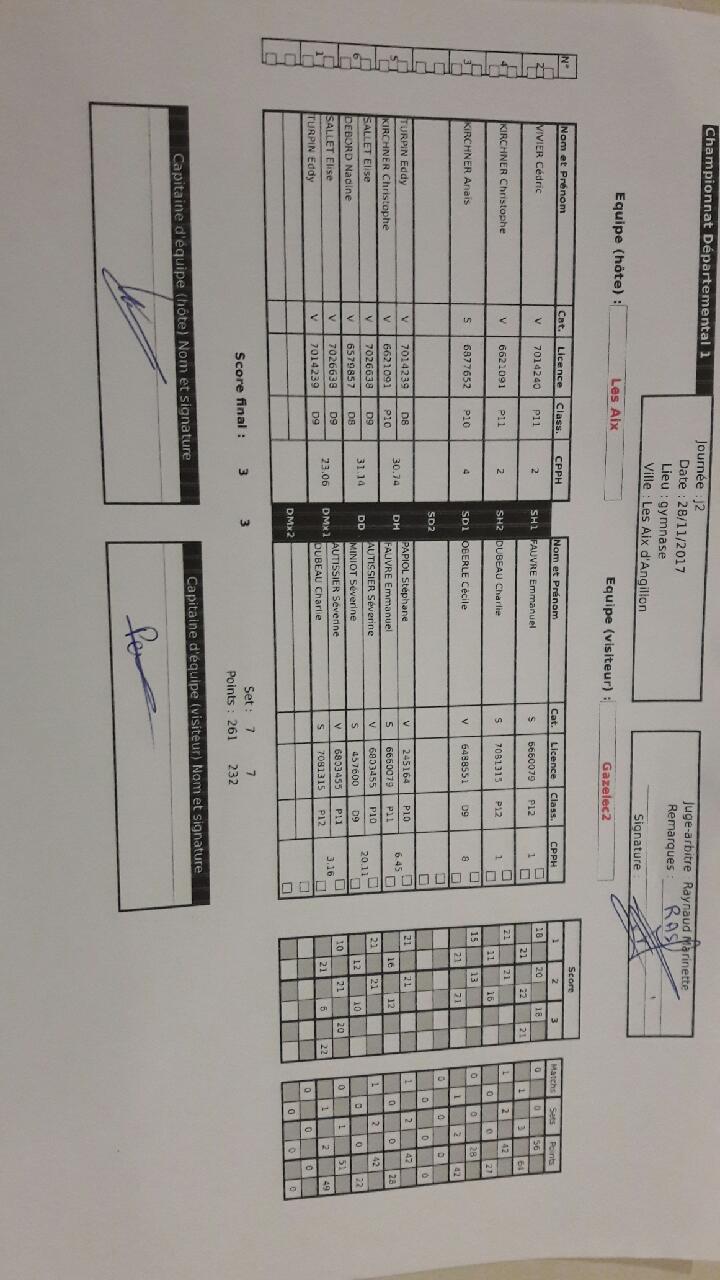 Championnat Départemental 1
Journée : J2
Date : 28/11/2017
Lieu : gymnase
Ville : Les Aix d'Angillon
Juge-arbitre Raynaud Marinette
Remarques : RAS
Signature :
Equipe (hôte) : Les Aix
Equipe (visiteur) : Gazelec2
Score
N° Nom et Prénom Cat. Licence Class. CPPH Nom et Prénom Cat. Licence Class. CPPH 1 2 3 Matchs Sets Points
2 VIVIER Cédric V 7014240 P11 2 SH1 FAUVRE Emmanuel S 6660079 P12 1 18 20 18 0 0 56
21 22 21 1 3 64
4 KIRCHNER Christophe V 6621091 P11 2 SH2 DUBEAU Charlie S 7081315 P12 1 21 21 1 2 42
11 16 0 0 27
3 KIRCHNER Anais S 6877652 P10 4 SD1 OBERLE Cécile V 6488551 D9 8 15 13 0 0 28
21 21 1 2 42
SD2 0 0 0
0 0 0
5 TURPIN Eddy V 7014239 D8 30.74 DH PAPIOL Stéphane V 245164 P10 6.45 21 21 1 2 42
KIRCHNER Christophe V 6621091 P10 FAUVRE Emmanuel S 6660079 P11 16 12 0 0 28
6 SALLET Elise V 7026638 D9 31.14 DD AUTISSIER Séverine V 6803455 P10 20.11 21 21 1 2 42
DEBORD Nadine V 6579857 D8 MINIOT Séverine S 457600 D9 12 10 0 0 22
1 SALLET Elise V 7026638 D9 23.06 DMx1 AUTISSIER Séverine V 6803455 P11 3.16 10 21 20 0 1 51
TURPIN Eddy V 7014239 D9 DUBEAU Charlie S 7081315 P12 21 6 22 1 2 49
DMx2 0 0 0
0 0 0
Score final : 3 3
Set : 7 7
Points : 261 232
Capitaine d'équipe (hôte) Nom et signature
Capitaine d'équipe (visiteur) Nom et signature